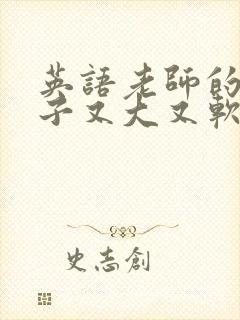 英語老師的
子又大又軟
史志創